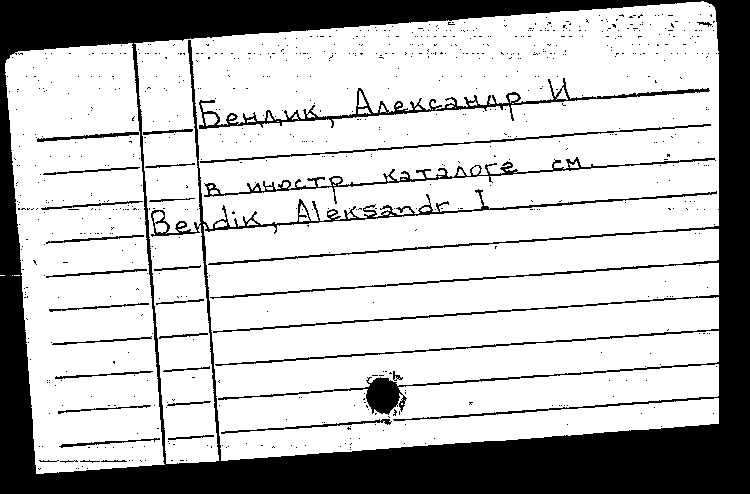 Бендик, Александр И
в иностр. каталоге см.
Bendik, Aleksandr I